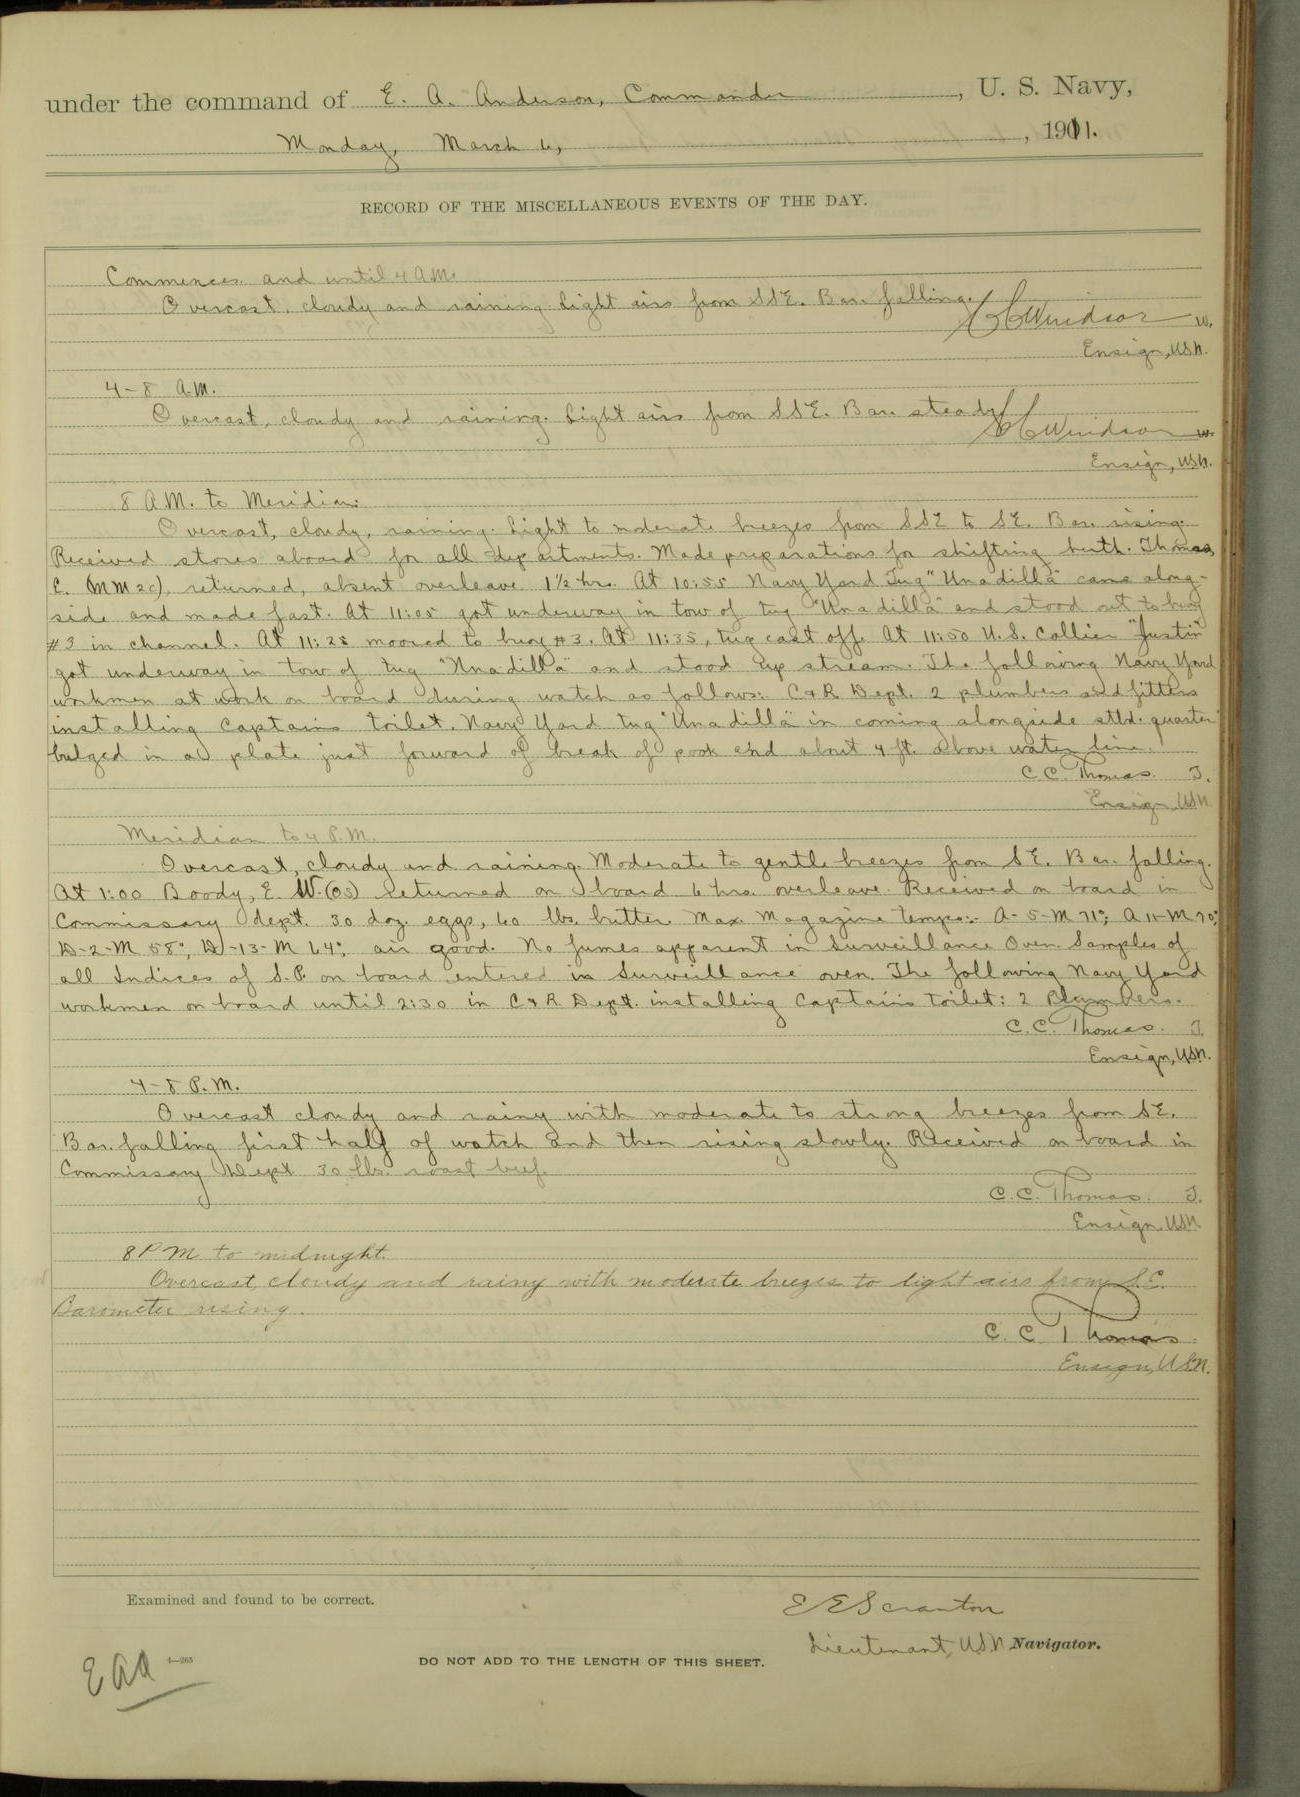 under the command of E. A. Anderson, Commander, U. S. Navy,
Monday, March 6, 1911.
RECORD OF THE MISCELLANEOUS EVENTS OF THE DAY.
Commences and until 4 A.M.
Overcast, cloudy and raining. Light airs from SSE. Bar. falling.
Windsor W.
Ensign, USN.
4-8 A.M.
Overcast, cloudy and raining. Light airs from SSE. Bar. steady
Windsor W.
Ensign, USN.
8 A.M. to Meridian:
Overcast, cloudy, raining. Light to moderate breezes from SSE to SE. Bar. rising.
Received stores aboard for all departments. Made preparations for shifting berth. Thomas,
C. (MM 2c), returned, absent overleave 1½ hrs. At 10:55 Navy Yard Tug "Unadilla" came along-
side and made fast. At 11:05 got underway in tow of tug "Unadilla" and stood out to buoy
#3 in channel. At 11:28 moored to buoy #3. At 11:35, tug cast off. At 11:50 U.S. Collier "Justin"
got underway in tow of tug "Unadilla" and stood up stream. The following Navy Yard
workmen at work on board during watch as follows: C & R Dept. 2 plumbers and fitters
installing Captains toilet. Navy Yard tug "Unadilla" in coming alongside stbd. quarter
bulged in a plate just forward of break of poop and about 4 ft. above water line.
C. C. Thomas. T.
Ensign USN
Meridian to 4 P.M.
Overcast, cloudy and raining. Moderate to gentle breezes from SE. Bar. falling.
At 1:00 Boody, E. W. (OS) returned on board 6 hrs. overleave. Received on board in
Commissary dept. 30 doz. eggs, 60 lbs. butter. Max Magazine temps:- A-5-M 71°; A 11-M 70°;
D-2-M 58°; D-13-M 64°; air good. No fumes apparent in Surveillance Oven. Samples of
all Indices of S.P. on board entered in Surveillance oven. The following Navy Yard
workmen on board until 2:30 in C & R Dept. installing Captain's toilet: 2 Plumbers.
C. C. Thomas. T.
Ensign, USN.
4-8 P.M.
Overcast cloudy and rainy with moderate to strong breezes from SE.
Bar. falling first half of watch and then rising slowly. Received on board in
Commissary Dept 30 lbs. roast beef.
C. C. Thomas. T.
Ensign USN
8 P M to midnight.
Overcast, cloudy and rainy with moderate breezes to light airs from S.E.
Barometer rising.
C. C. Thomas.
Ensign, U.S.N.
Examined and found to be correct.
E E Scranton
Lieutenant, U.S.N. Navigator.
EAA 1—265
DO NOT ADD TO THE LENGTH OF THIS SHEET.